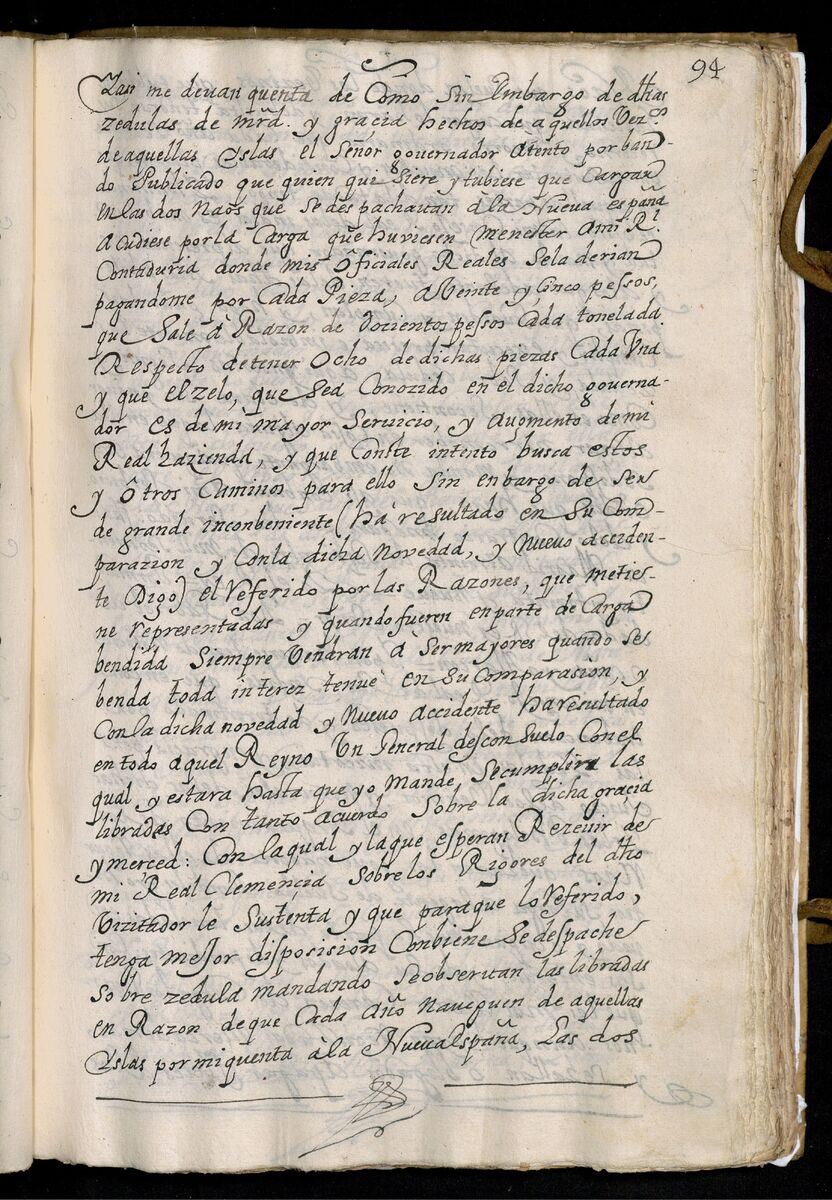 94
Yasi me devan quenta de Como Sin Embargo de dhas
zedulas de mrd. y gracia hechos de aquellos Vezos
de aquellas yslas el Señor governador atento por ban-
do Publicado que quien quisiere y tubiese que Cargar
en las dos Naos que se despachavan à la Nueva españa
acudiese por la Carga que huviesen menester Ami Rl.
Contaduria donde mis ôficiales Reales se la derian
pagandome por Cada Pieza, a Veinte y Cinco pessos,
que Sale à Razon de docientos pessos Cada tonelada
Respecto detener Ocho de dichas piezas Cada Una
y que el zelo, que sea Conozido en el dicho governa-
dor es de mi mayor Servicio, y augmento de mi
Real hazienda, y que Conste intento busca estos
y ôtros Caminos para ello Sin enbargo de ser
de grande inconbeniente (ha resultado en Su Com-
parazion y Con la dicha Novedad, y Nuevo acciden-
te Digo) el Referido por las Razones, que me tie-
ne representadas y quando fueren en parte de Carga
bendida Siempre Vendran à Ser mayores quando se
benda toda interez tenuè en Su Comparasion, y
Con la dicha novedad y Nuevo accidente ha resultado
en todo aquel Reyno Un General desconsuelo Con el
qual y estara hasta que yo Mande, Se cumplira las
libradas Con tanto acuerdo Sobre la dicha gracia
y merced: Con la qual y la que esperan Rezevir de
mi Real Clemencia Sobre los Rigores del dho
Vizitador le Sustenta y que para que lo Referido,
tenga mejor disposision Conbiene Se despache
Sobre zedula mandando Se observan las libradas
en Razon de que Cada Año Naveguen de aquellas
yslas por mi quenta à la Nueva España, Las dos